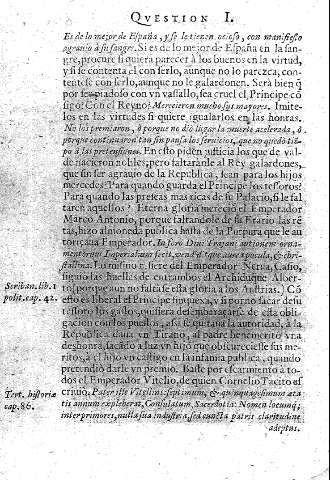 QVESTION I.
Es de lo mejor de España, y se la tienen ocioso, con manifiesto
agrauio à su sangre. Si es de lo mejor de España en la san-
gre, procure si quiera parecer à los buenos en la virtud,
y si se contenta el con serlo, aunque no lo parezca, con-
tentese con serlo, aunque no le galardonen. Serà bien q̃
por ser piadoso con vn vassallo, sea cruel el Principe cõ-
sigo? Con el Reyno? Merecieron mucho sus mayores. Imite-
los en las virtudes si quiere igualarlos en las honras.
No los premiaron, ò porque no diò lugar la muerte acelerada, ò
porque continuaron tan sin pausa los seruicios, que no quedò tiẽ-
po à las pretensiones. Estos piden justicia
nacieron nobles, pero faltaràle al Rey galardones,
que sin ser agrauio de la Republica, sean para los hijos
mercedes? Para quando guarda el Principe los tesoros?
Para quando las preseas mas ricas de su Palacio, si le fal-
tarẽ aquellos? Eterna gloria mereciò el Emperador
Marco Antonio, porque faltandole de su Erario las rẽ-
tas, hizo almoneda publica hasta de la Purpura que le au-
torizaua Emperador. In foro Diui Trajani auctionem orna-
mentorum Imperialium fecit, vendi
stallina. Fue muy suyo en este del Emperador Nerua, Casio,
siguiò las huellas de entrambos el Archiduque Alber-
to, porque aun no falta se esta gloria à los Austrias.
so es liberal el Principe sin quexa, y si por no sacar de su
tesoro los gastos, quisiera desembaraçarse de esta obli-
gacion con los puestos, assi se quitara la autoridad, à la
Republica daua vn Tirano, al padre benemerito vna
deshonra, sacãdo à luz vn hijo que obscureciesse sus me-
ritos, à el hijo vn castigo en la infamia publica, quando
pretendiò darle vn premio. Baste por escarmiento à to-
dos el Emperador Vitelio, de quien Cornelio Tacito es-
criuiò. Pater iste Vitellius septimum, & quinquagessimum æta-
tis annum expleberat, Consulatum, Sacerdotia: Nomen locumq;
inter primores, nulla sua industria, sed cuncta patris claritudine
adeptus.
Scriban. lib. 1
polit. cap. 42.
Tact. historiæ
cap. 86.